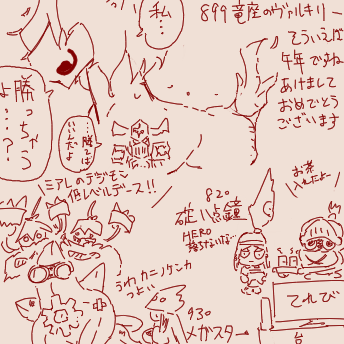 私…
899 竜座のヴァルキリー
てういえば
午年ですね
あけまして
おめでとう
ございます
勝っちゃう
よ……?
…勝ては
いいだよ
ミアレのデジモン
低レベルデース!!
820
碇八点鐘
HERO
落ちないな…
お茶
入れたよー
うわカニノケンカ
つよい
930
メガスター→
てれび
台